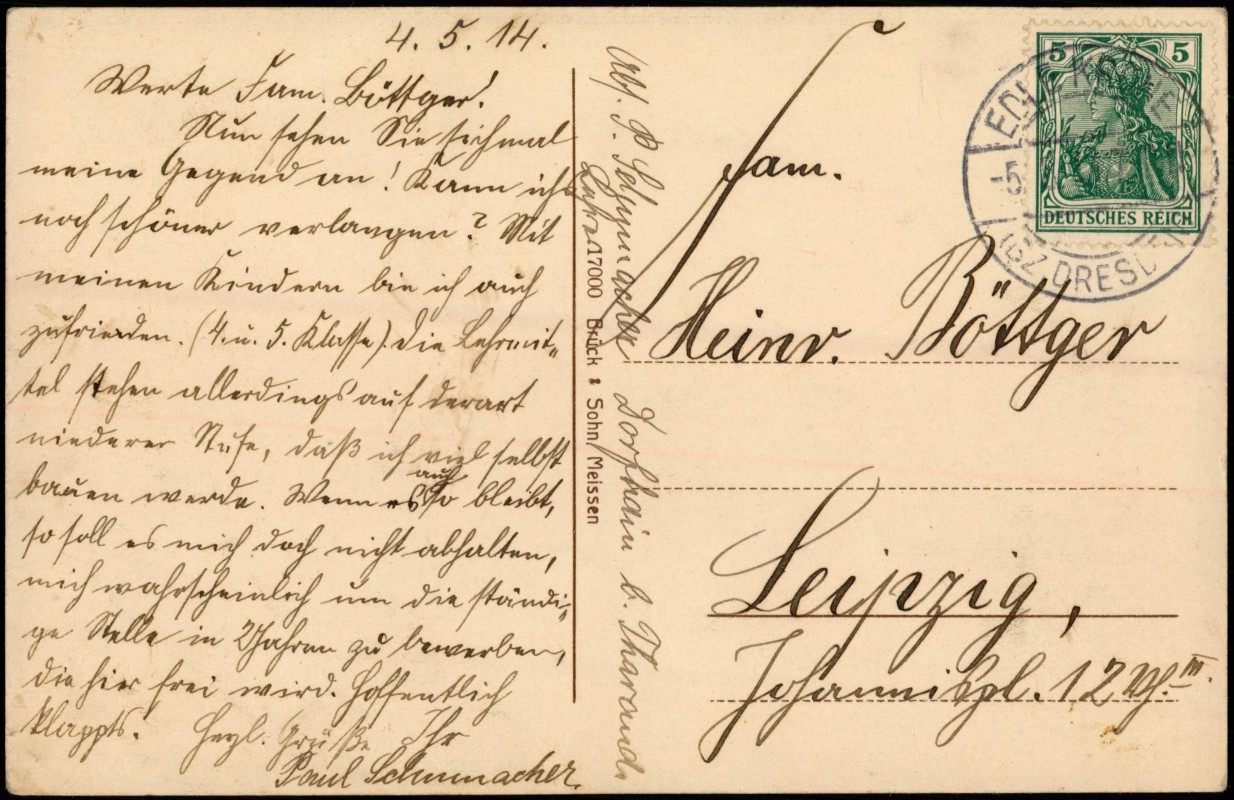 4. 5. 14.
Werte Fam. Böttger!
Nun sehen Sie sich mal
meine Gegend an! Kann ich
noch schöner verlangen? Mit
meinen Kindern bin ich auch
zufrieden. (4. u. 5. Klasse). Die Lehrmit„
tel stehen allerdings auf derart
niederer Stufe, daß ich viel selbst
bauen werde. Wenn es auch so bleibt,
so soll es mich doch nicht abhalten,
mich wahrscheinlich um die ständi„
ge Stelle in 2 Jahren zu bewerben,
die hier frei wird. Hoffentlich
klappts. Herzl. Grüße Ihr
Paul Schumacher.
Abs. P. Schumacher Dorfhain b. Tharandt
Lehrer
17000 Brück & Sohn, Meissen
DEUTSCHES REICH
5 5
EDLE KRONE
5.
(BZ. DRESDEN)
Fam.
Heinr. Böttger
Leipzig,
Johannispl. 12 III.